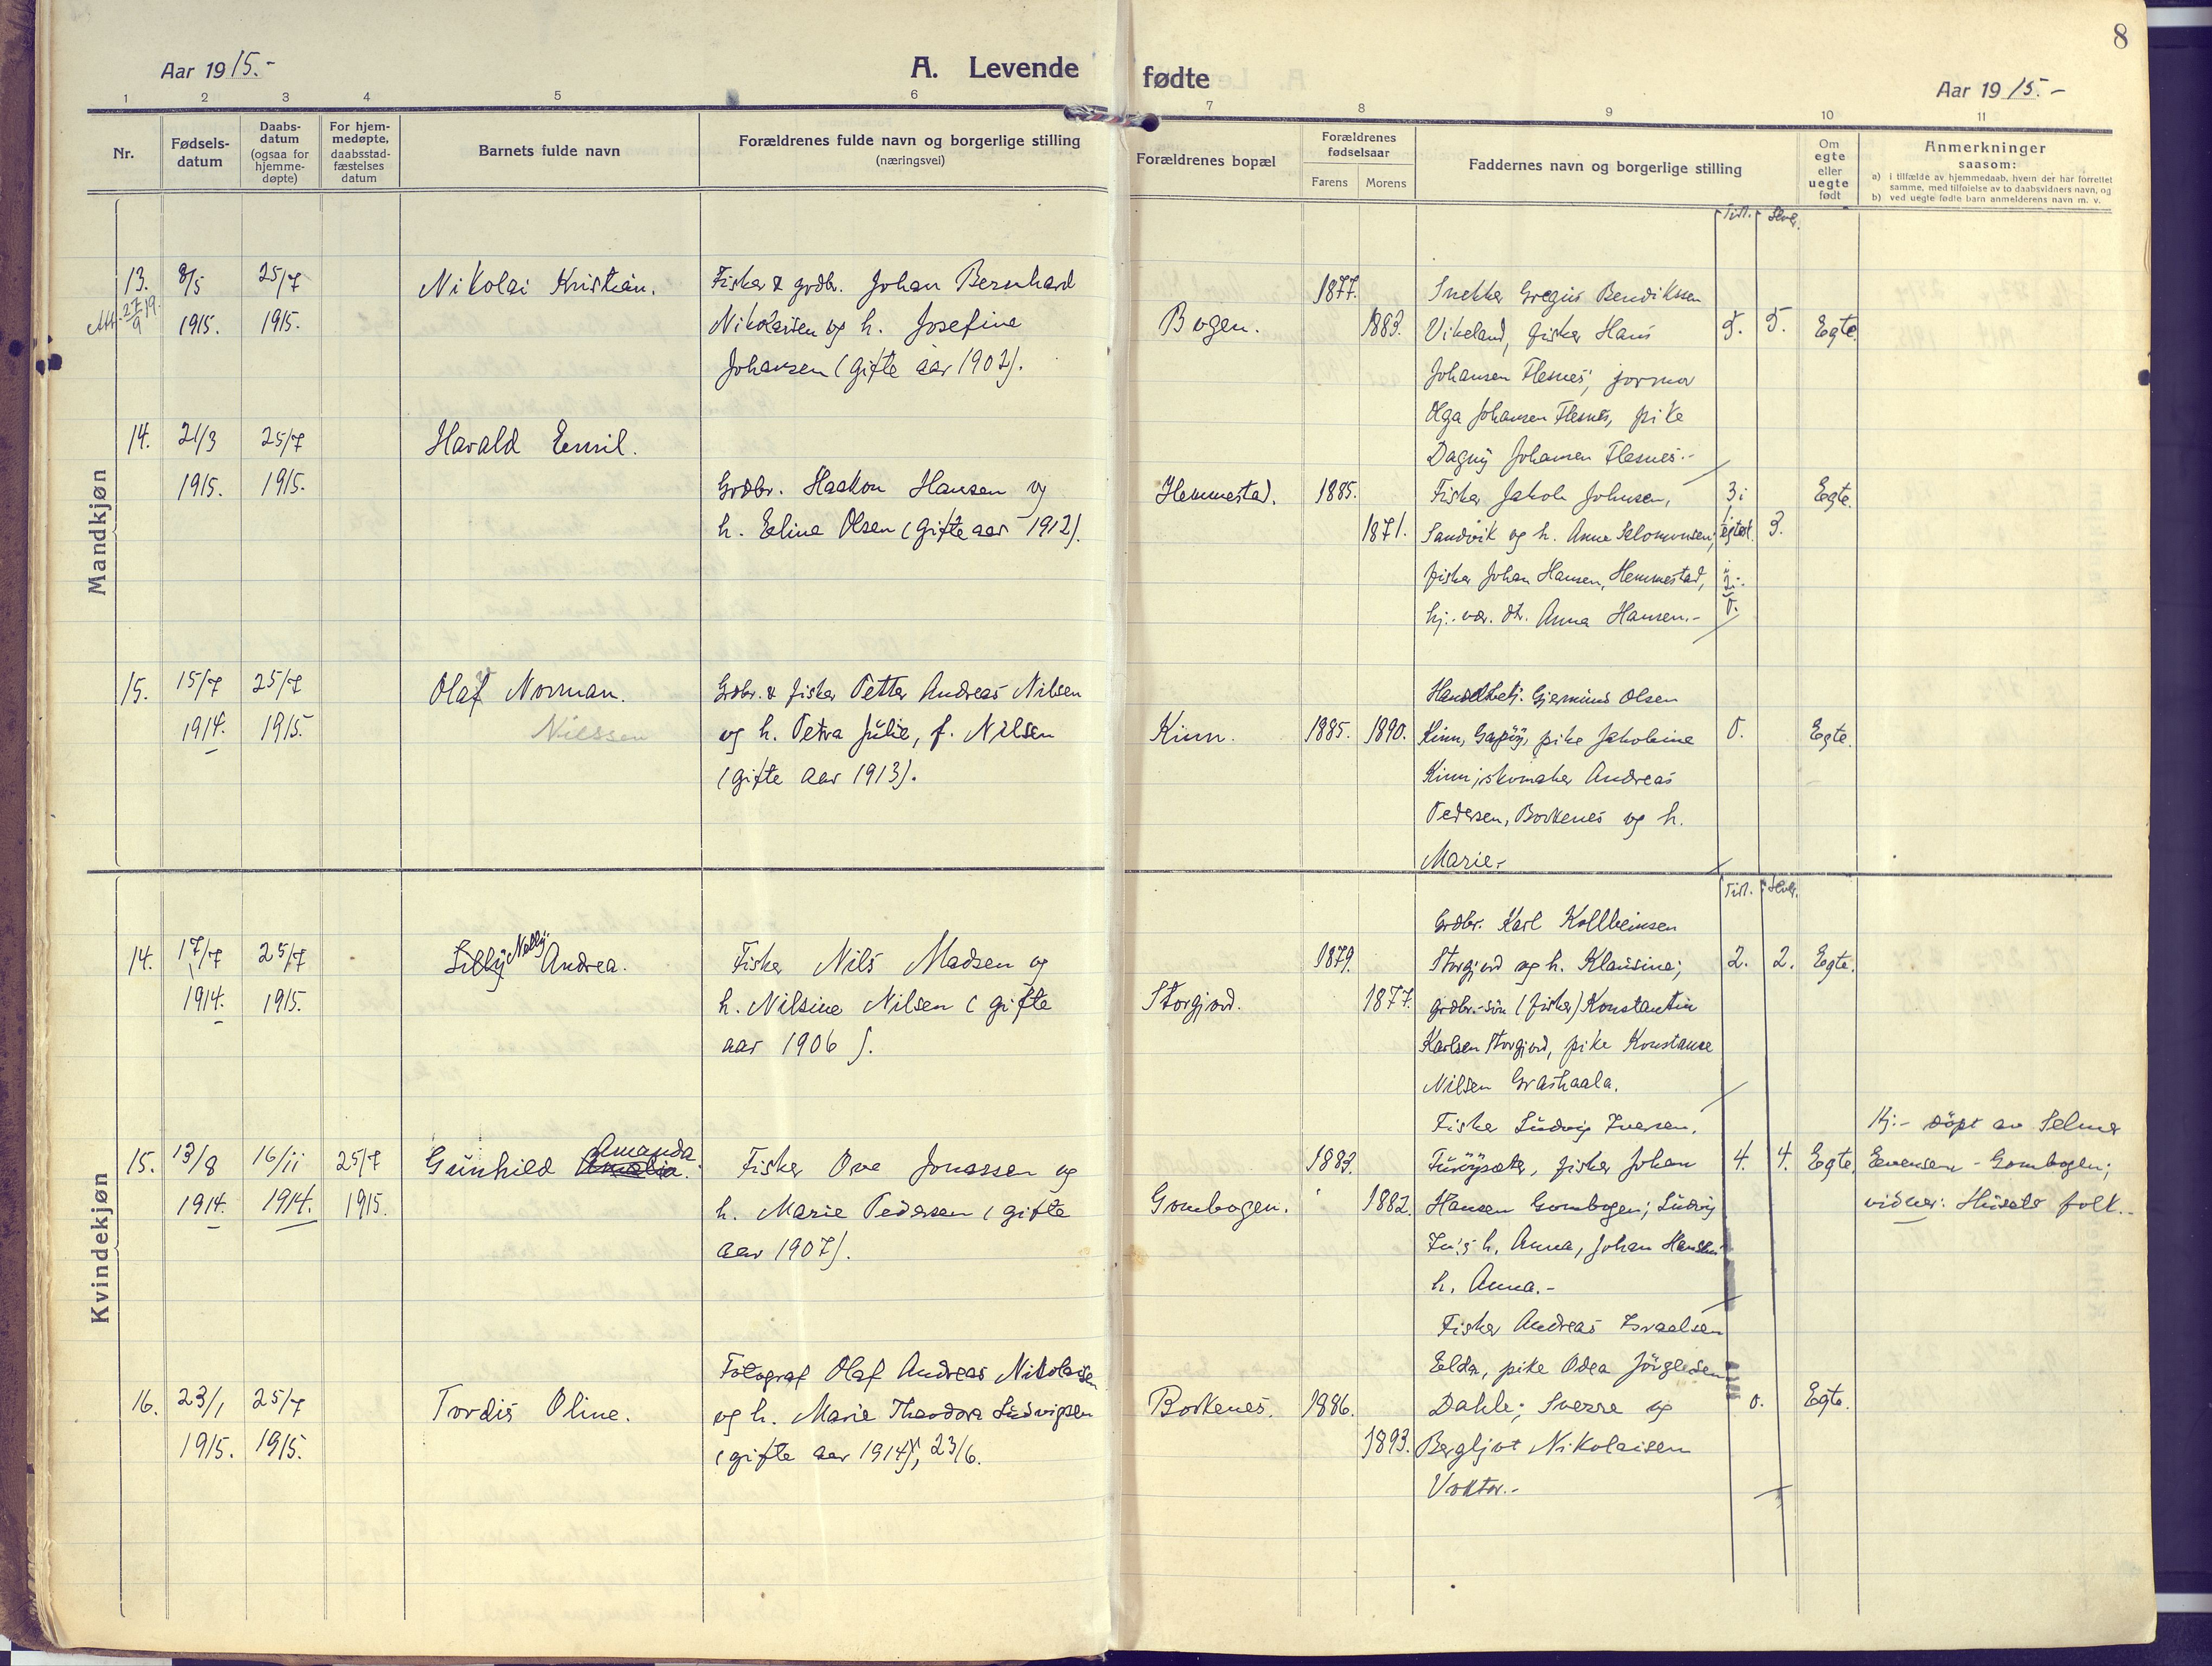 8
Aar 1915.-
A. Levende
fødte
Aar 1915.-
1 2 3 4 5 6 7 8 9 10 11
Nr.
Fødsels-
datum
Daabs-
datum
(ogsaa for
hjemme-
døpte)
For hjem-
medøpte,
daabsstad-
fæstelses
datum
Barnets fulde navn
Forældrenes fulde navn og borgerlige stilling
(næringsvei)
Forældrenes bopæl
Forældrenes
fødselsaar
Farens
Morens
Faddernes navn og borgerlige stilling
Om
egte
eller
uegte
født
Anmerkninger
saasom:
a) i tilfælde av hjemmedaab, hvem der har forrettet
samme, med tilføielse av to daabsvidners navn, og
b) ved uegte fødte barn anmelderens navn m. v.
Mandkjøn
13.
Att. 27/9 19.
8/5
1915.
25/7
1915.
Nikolai Kristian.
Fisker & grdbr. Johan Bernhard
Nikolaisen og h. Josefine
Johansen (gifte aar 1902).
Bogen.
1877.
1883.
Snekker Gregius Bendikssen
Vikeland, fisker Hans
Johansen Flesnes; jormor
Olga Johansen Flesnes, pike
Dagny Johansen Flesnes.-
5.
5.
Egte.
14.
21/3
1915.
25/7
1915.
Harald Emil.
Grdbr. Haakon Hansen og
h. Eline Olsen (gifte aar 1912).
Hemmestad.
1885.
1871.
Fisker Jakob Johnsen,
Sandvik og h. Anne Salomonsen;
fisker Johan Hansen, Hemmestad,
hj.-vær. dtr. Anna Hansen.-
3 i
3.
Egte.
15.
15/7
1914.
25/7
1915.
Olaf Norman.
Nilssen
Grdbr. & fisker Petter Andreas Nilsen
og h. Petra Julie, f. Nilsen
(gifte aar 1913).
Kinn.
1885.
1890.
Handelsbetj. Gjermund Olsen
Kinn, Gapøy, pike Jakobine
Kinn; skomaker Andreas
Pedersen, Borkenes og h.
Marie.-
0.
Egte.
Kvindekjøn
14.
17/7
1914.
25/7
1915.
Lilly Nelly Andrea.
Fisker Nils Madsen og
h. Nilsine Nilsen (gifte
aar 1906).
Storgjord.
1879.
1877.
Grdbr. Karl Kollbeinsen
Storgjord og h. Klausine;
grdbr.-søn (fisker) Konstantin
Karlsen Storgjord, pike Konstanse
Nilsen Grashaala.
2.
2.
Egte.
15.
13/8
1914.
16/11
1914.
25/7
1915.
Gunhild Amalia. Amanda
Fisker Ove Jonassen og
h. Marie Pedersen (gifte
aar 1907).
Gombogen.
1883.
1882.
Fisker Ludvig Iversen,
Furøysæter, fisker Johan
Hansen Gombogen; Ludvig
Iv's h. Anna, Johan Hansens
h. Anna.-
4.
4.
Egte.
Hj.- døpt av Selmer
Evensen - Gombogen;
vidner: Husets folk.-
16.
23/1
1915.
25/7
1915.
Tordis Oline.
Fotograf Olaf Andreas Nikolaisen
og h. Marie Theodora Ludvigsen
(gifte aar 1914), 23/6.
Borkenes.
1886.
1893.
Fisker Andreas Israelsen
Elda, pike Odea Jørgensen
Dahle; Sverre og
Bergljot Nikolaisen
Voktor.-
0.
Egte.